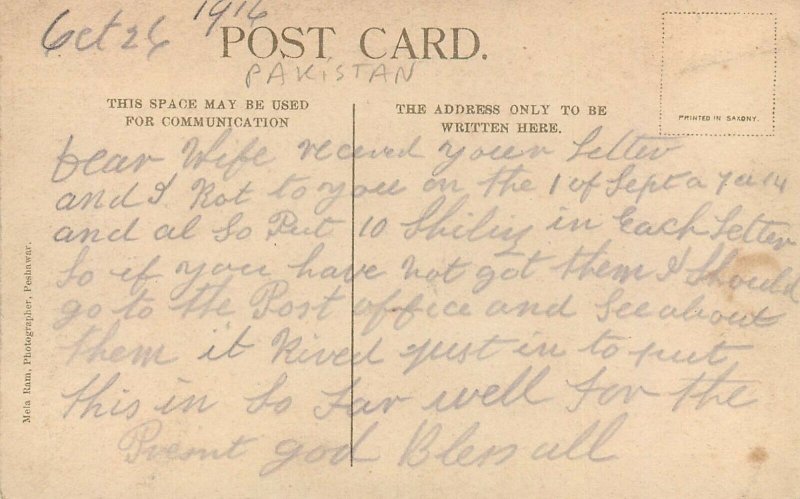 Oct 26 1916
POST CARD.
PAKISTAN
THIS SPACE MAY BE USED
FOR COMMUNICATION
THE ADDRESS ONLY TO BE
WRITTEN HERE.
PRINTED IN SAXONY.
Dear Wife receved your Letter
and I Rot to you on the 1 of Sept a
and al So Put 10 Shiling in Each Letter
So if you have not got them I Should
go to the Post office and See about
them it Rived just in to put
this in So Far well For the
Presnt god Bless all
Mela Ram, Photographer, Peshawar.